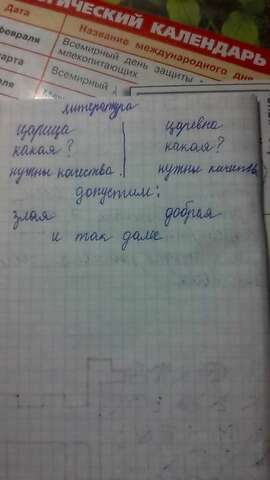 ГИЧЕСКИЙ КАЛЕНДАРЬ
Дата
Название международного дне
февраля
Всемирный день защиты
млекопитающих
арта
Всемирный
еля
литература
царица
царевна
какая?
какая?
нужны качества
нужны качества
допустим:
злая
добрая
и так далее